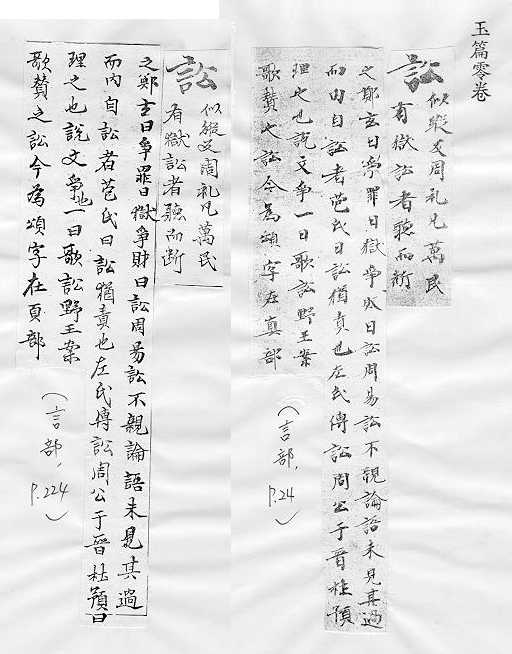 玉篇零卷
訟似縱反周礼凡萬民
有獄訟者聽而断
之鄭玄曰爭罪曰獄爭財曰訟周易訟不親論語未見其過
而内自訟者苞氏曰訟猶責也左氏傳訟周公于晉杜預
理之也說文爭一曰歌訟野王案
歌賛之訟今為頌字在頁部
(言部, P.24)
訟似縱反周礼凡萬民
有獄訟者聽而断
之鄭玄曰爭罪曰獄爭財曰訟周易訟不親論語未見其過
而内自訟者苞氏曰訟猶責也左氏傳訟周公于晉杜預曰
理之也說文爭也一曰歌訟野王案
歌賛之訟今為頌字在頁部
(言部, P.224)